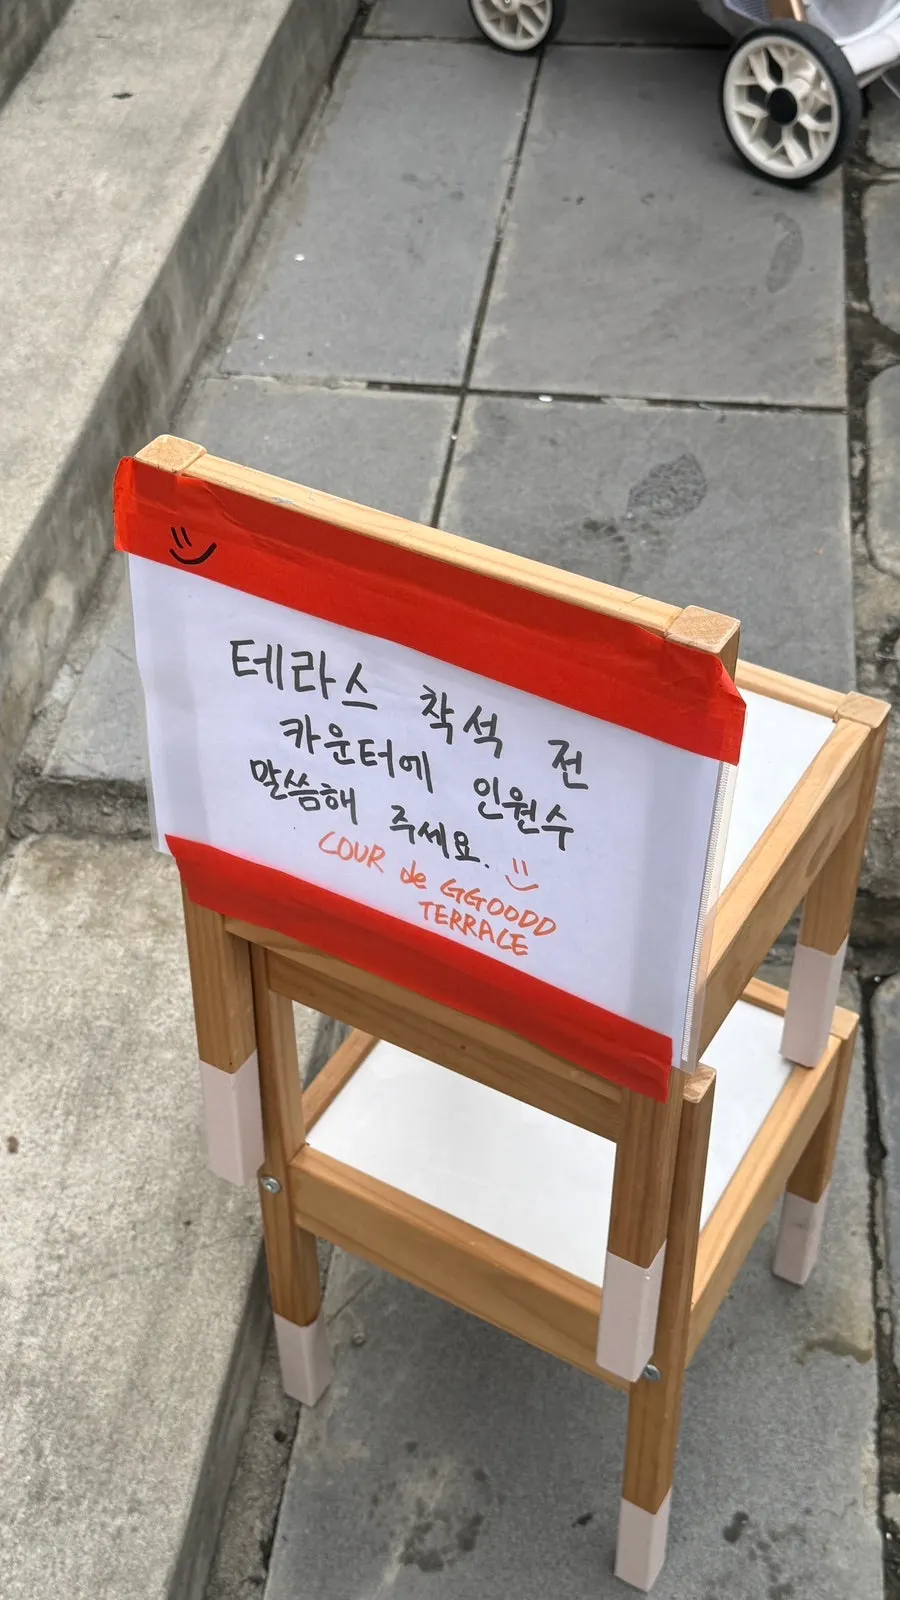 테라스 착석 전
카운터에 인원수
말씀해 주세요.
COUR de GGOODD
TERRACE